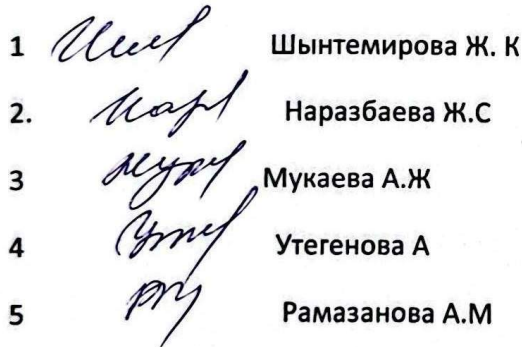 1 Шынтемирова Ж. К
2. Наразбаева Ж.С
3 Мукаева А.Ж
4 Утегенова А
5 Рамазанова А.М